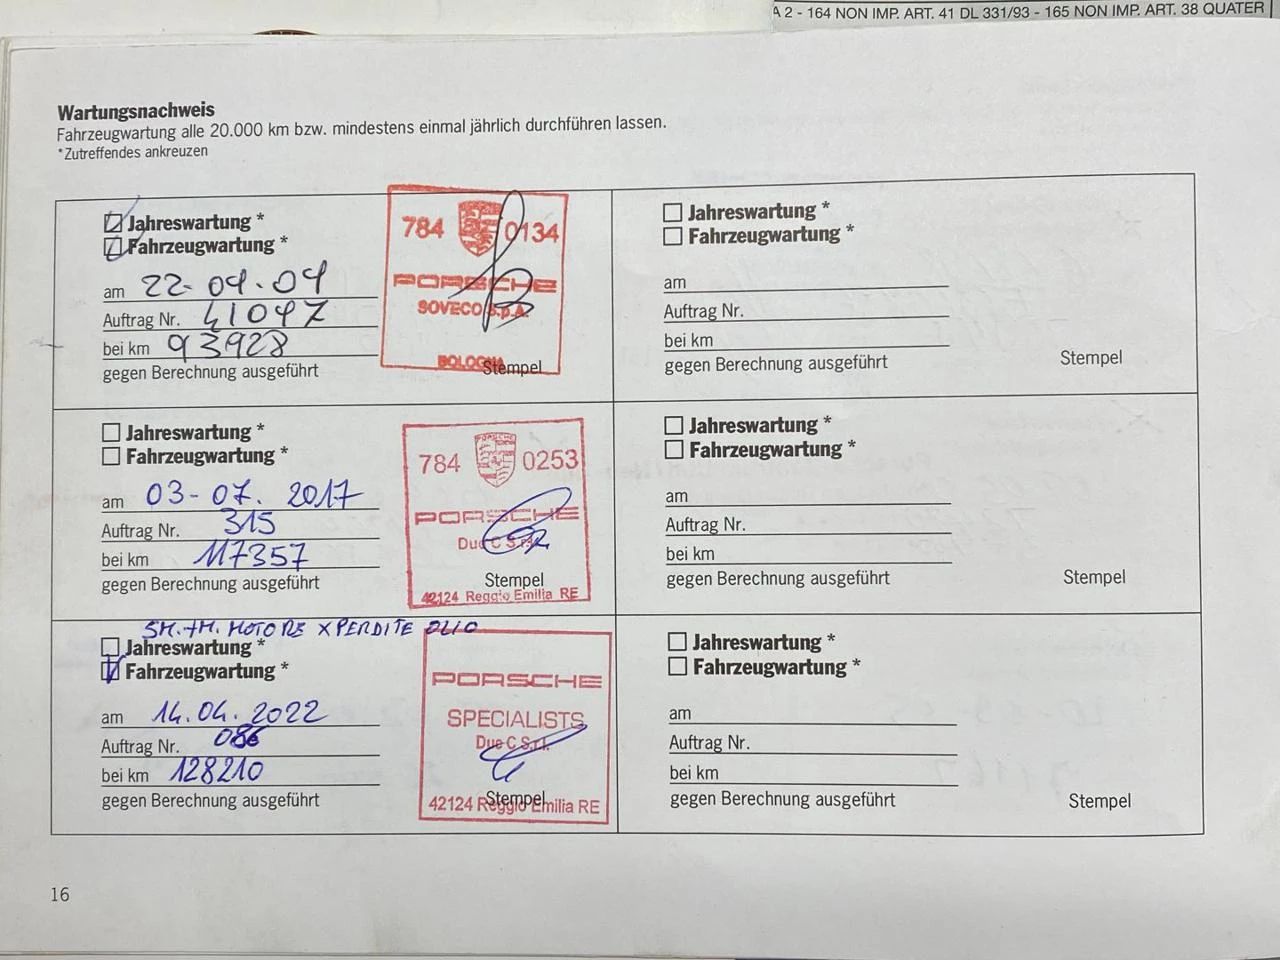 A 2 - 164 NON IMP. ART. 41 DL 331/93 - 165 NON IMP. ART. 38 QUATER
Wartungsnachweis
Fahrzeugwartung alle 20.000 km bzw. mindestens einmal jährlich durchführen lassen.
*Zutreffendes ankreuzen
Jahreswartung *
Fahrzeugwartung *
am 22-04.04
Auftrag Nr. 41047
bei km 93928
gegen Berechnung ausgeführt
784 0134
PORSCHE
SOVECO S.p.A.
BOLOGNA
Stempel
Jahreswartung *
Fahrzeugwartung *
am
Auftrag Nr.
bei km
gegen Berechnung ausgeführt
Stempel
Jahreswartung *
Fahrzeugwartung *
am 03-07. 2017
Auftrag Nr. 315
bei km 117357
gegen Berechnung ausgeführt
PORSCHE
784 0253
PORSCHE
Due C S.r.l.
Stempel
42124 Reggio Emilia RE
Jahreswartung *
Fahrzeugwartung *
am
Auftrag Nr.
bei km
gegen Berechnung ausgeführt
Stempel
SM.+M. MOTORE X PERDITE OLIO
Jahreswartung *
Fahrzeugwartung *
am 14.04.2022
Auftrag Nr. 086
bei km 128210
gegen Berechnung ausgeführt
PORSCHE
SPECIALISTS
Due C S.r.l.
Stempel
42124 Reggio Emilia RE
Jahreswartung *
Fahrzeugwartung *
am
Auftrag Nr.
bei km
gegen Berechnung ausgeführt
Stempel
16